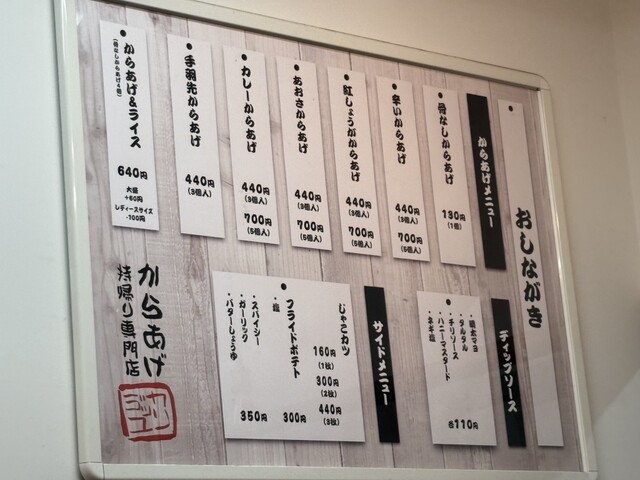 おしながき
からあげメニュー
骨なしからあげ
130円
(1個)
辛いからあげ
440円
(3個入)
700円
(5個入)
紅しょうがからあげ
440円
(3個入)
700円
(5個入)
あおさからあげ
440円
(3個入)
700円
(5個入)
カレーからあげ
440円
(3個入)
700円
(5個入)
手羽先からあげ
440円
(3個入)
からあげ&ライス
(骨なしからあげ4個)
640円
大盛
+60円
レディースサイズ
-100円
ディップソース
・明太マヨ
・タルタル
・チリソース
・ハニーマスタード
・ネギ塩
各110円
サイドメニュー
じゃこカツ
160円
(1枚)
300円
(2枚)
440円
(3枚)
フライドポテト
・塩
300円
・スパイシー
・ガーリック
・バターしょうゆ
350円
からあげ
持帰り専門店